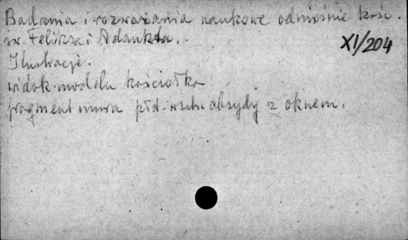 Badania i rozważania naukowe odnośnie kośc.
św. Feliksa i Adaukta.
XI/204
Ilustracje.
widok modelu kościołka
fragment muru płd-wsch. absydy z oknem.